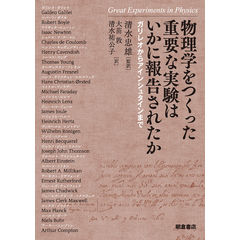 Great Experiments in Physics
物理学をつくった
重要な実験は
いかに報告されたか
ガリレイからアインシュタインまで
清水忠雄[監訳]
大苗 敦
清水祐公子[訳]
Galileo Galilei
Robert Boyle
Isaac Newton
Charles de Coulomb
Henry Cavendish
Thomas Young
Augustin Fresnel
Hans Christian Ørsted
Michael Faraday
Heinrich Lenz
James Joule
Heinrich Hertz
Wilhelm Röntgen
Henri Becquerel
Joseph John Thomson
Albert Einstein
Robert A. Millikan
Ernest Rutherford
James Chadwick
James Clerk Maxwell
Max Planck
Niels Bohr
Arthur Compton
朝倉書店